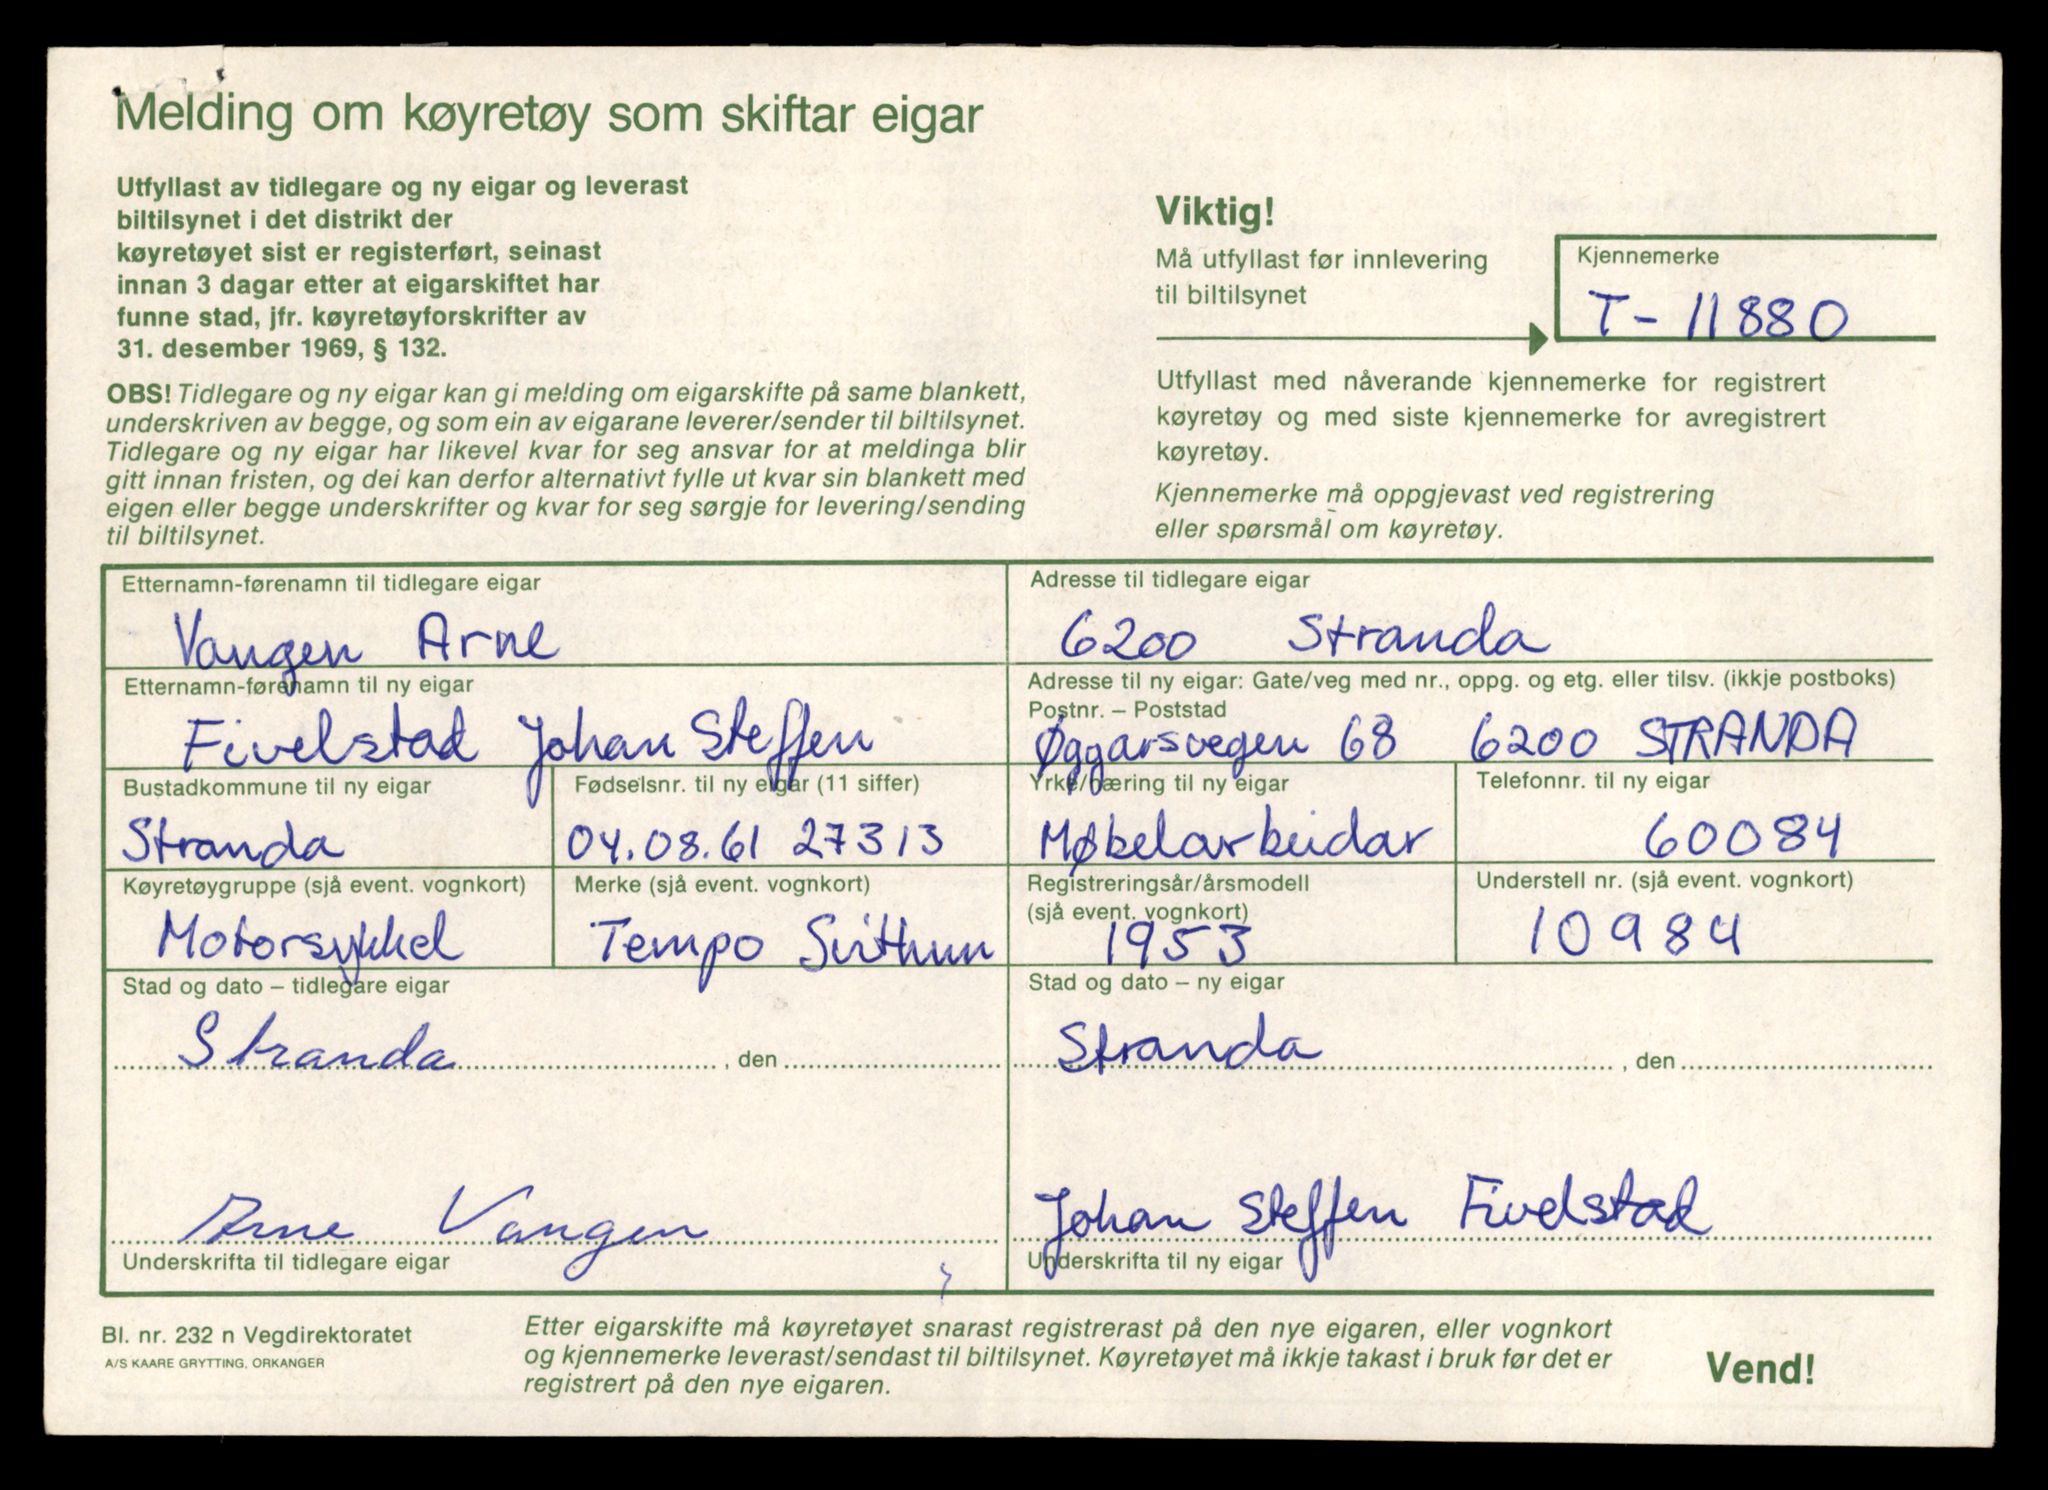 Melding om køyretøy som skiftar eigar
Utfyllast av tidlegare og ny eigar og leverast
biltilsynet i det distrikt der
køyretøyet sist er registerført, seinast
innan 3 dagar etter at eigarskiftet har
funne stad, jfr. køyretøyforskrifter av
31. desember 1969, § 132.
OBS! Tidlegare og ny eigar kan gi melding om eigarskifte på same blankett,
underskriven av begge, og som ein av eigarane leverer/sender til biltilsynet.
Tidlegare og ny eigar har likevel kvar for seg ansvar for at meldinga blir
gitt innan fristen, og dei kan derfor alternativt fylle ut kvar sin blankett med
eigen eller begge underskrifter og kvar for seg sørgje for levering/sending
til biltilsynet.
Viktig!
Må utfyllast før innlevering
til biltilsynet
Kjennemerke
T - 11880
Utfyllast med nåverande kjennemerke for registrert
køyretøy og med siste kjennemerke for avregistrert
køyretøy.
Kjennemerke må oppgjevast ved registrering
eller spørsmål om køyretøy.
Etternamn-førenamn til tidlegare eigar
Vangen Arne
Adresse til tidlegare eigar
6200 Stranda
Etternamn-førenamn til ny eigar
Fivelstad Johan Steffen
Adresse til ny eigar: Gate/veg med nr., oppg. og etg. eller tilsv. (ikkje postboks)
Postnr. – Poststad
Øggarsvegen 68 6200 STRANDA
Bustadkommune til ny eigar
Stranda
Fødselsnr. til ny eigar (11 siffer)
04.08.61 27313
Yrke/næring til ny eigar
Møbelarbeidar
Telefonnr. til ny eigar
60084
Køyretøygruppe (sjå event. vognkort)
Motorsykkel
Merke (sjå event. vognkort)
Tempo Svithun
Registreringsår/årsmodell
(sjå event. vognkort)
1953
Understell nr. (sjå event. vognkort)
10984
Stad og dato – tidlegare eigar
Stranda , den
Stad og dato – ny eigar
Stranda , den
Arne Vangen
Underskrifta til tidlegare eigar
Johan Steffen Fivelstad
Underskrifta til ny eigar
Bl. nr. 232 n Vegdirektoratet
A/S KAARE GRYTTING, ORKANGER
Etter eigarskifte må køyretøyet snarast registrerast på den nye eigaren, eller vognkort
og kjennemerke leverast/sendast til biltilsynet. Køyretøyet må ikkje takast i bruk før det er
registrert på den nye eigaren.
Vend!